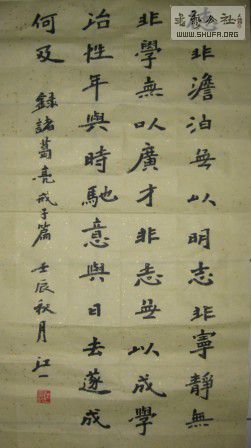 WWW.SHUFA.ORG
非澹泊無以明志非寧靜無
非學無以廣才非志無以成學
冶性年與時馳意與日去遂成
何及
錄諸葛亮戒子篇 壬辰秋月 江一